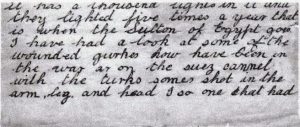 it has a thousand lights in it and
they lighted five times a year that
is when the sulton of Egypt gos
I have had a look at some of the
wounded gurkes how have been in
the war ar on the suez cannel
with the turks somes shot in the
arm, leg and head I so one that had